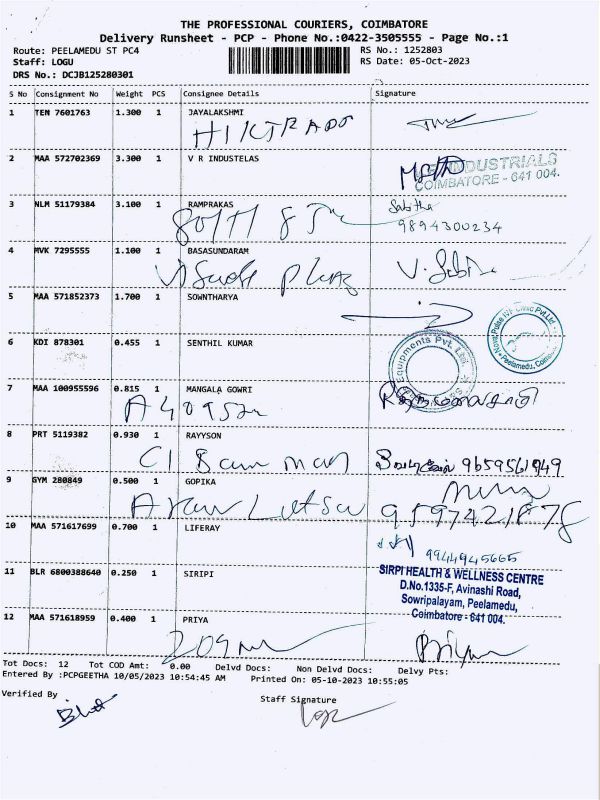 THE PROFESSIONAL COURIERS, COIMBATORE
Delivery Runsheet - PCP - Phone No.:0422-3505555 - Page No.:1
Route: PEELAMEDU ST PC4 RS No.: 1252803
Staff: LOGU RS Date: 05-Oct-2023
DRS No.: DCJB125280301
S No Consignment No Weight PCS Consignee Details Signature
1 TEN 7601763 1.300 1 JAYALAKSHMI
2 MAA 572702369 3.300 1 V R INDUSTELAS
INDUSTRIALS
COIMBATORE - 641 004.
3 NLM 51179384 3.100 1 RAMPRAKAS
Sabitha
9894300234
4 MVK 7295555 1.100 1 BASASUNDARAM
5 MAA 571852373 1.700 1 SOWNTHARYA
6 KDI 878301 0.455 1 SENTHIL KUMAR
Equipments Pvt. Ltd.
7 MAA 100955596 0.815 1 MANGALA GOWRI
8 PRT 5119382 0.930 1 RAYYSON
9659561949
9 GYM 280849 0.500 1 GOPIKA
10 MAA 571617699 0.700 1 LIFERAY
9944945665
11 BLR 6800388640 0.250 1 SIRIPI
SIRPI HEALTH & WELLNESS CENTRE
D.No.1335-F, Avinashi Road,
Sowripalayam, Peelamedu,
Coimbatore - 641 004.
12 MAA 571618959 0.400 1 PRIYA
Tot Docs: 12 Tot COD Amt: 0.00 Delvd Docs: Non Delvd Docs: Delvy Pts:
Entered By :PCPGEETHA 10/05/2023 10:54:45 AM Printed On: 05-10-2023 10:55:05
Verified By Staff Signature